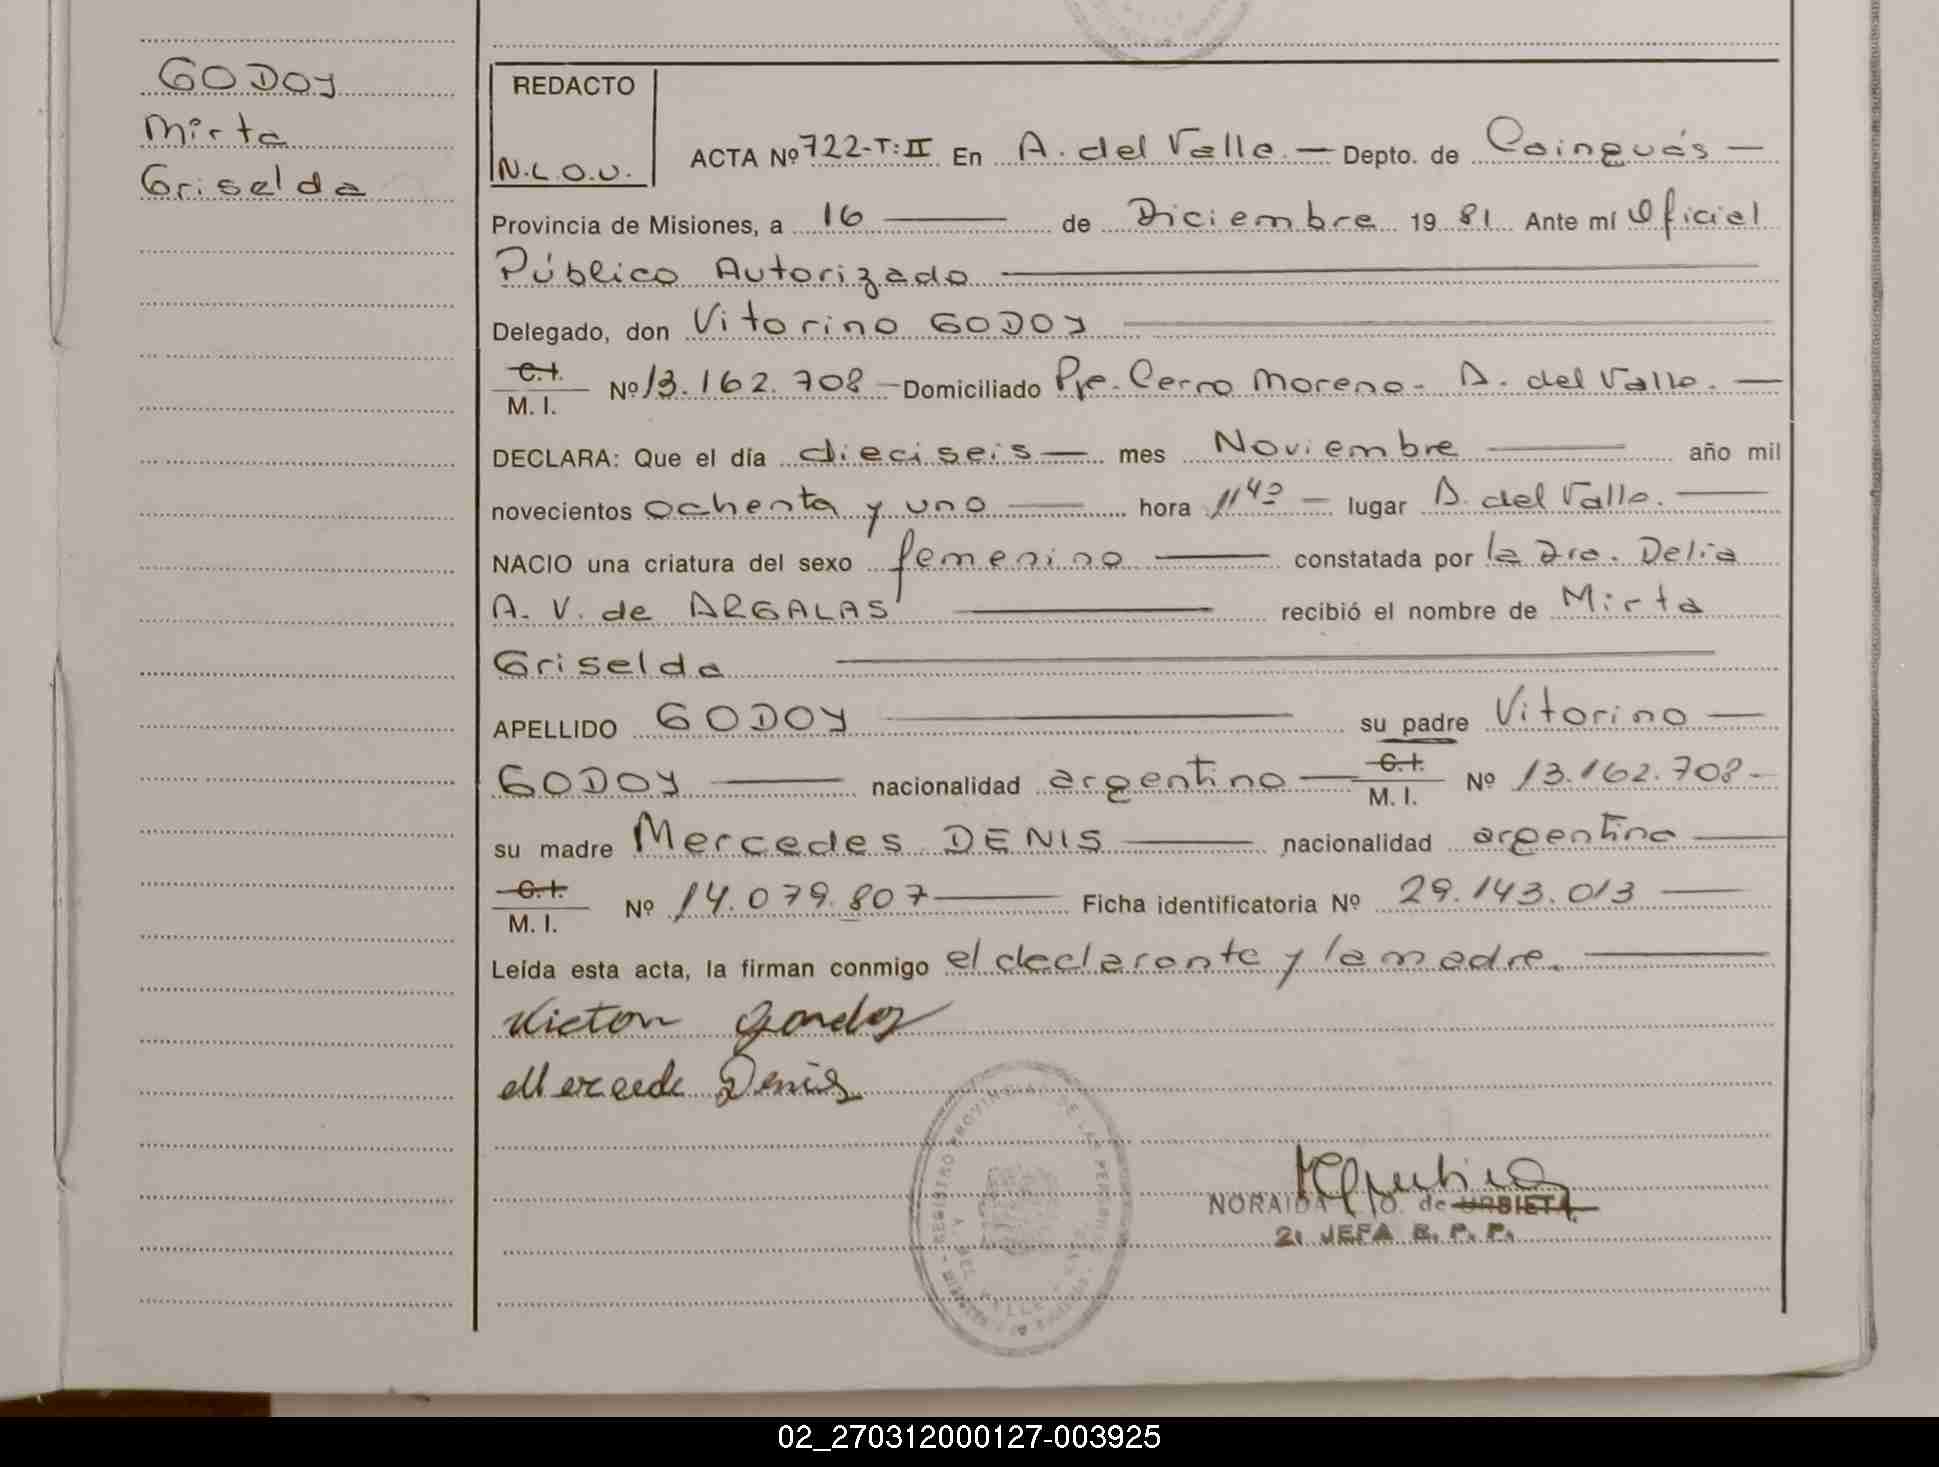 GODOY
Mirta
Griselda
REDACTO
N.L.O.U.
ACTA Nº 722-T:II En A. del Valle.— Depto. de Cainguás —
Provincia de Misiones, a 16 —— de Diciembre 1981 Ante mí Oficial
Público Autorizado ——
Delegado, don Vitorino GODOY ——
C.I.
M. I. Nº 13.162.708 — Domiciliado Pje. Cerro Moreno - A. del Valle. —
DECLARA: Que el día dieciseis — mes Noviembre —— año mil
novecientos ochenta y uno —— hora 11⁴⁰ — lugar A. del Valle. ——
NACIO una criatura del sexo femenino —— constatada por la Dra. Delia
A. V. de ARGALAS —— recibió el nombre de Mirta
Griselda ——
APELLIDO GODOY —— su padre Vitorino —
GODOY —— nacionalidad argentino — C.I. M. I. Nº 13.162.708 -
su madre Mercedes DENIS —— nacionalidad argentina ——
C.I.
M. I. Nº 14.079.807 —— Ficha identificatoria Nº 29.143.013 ——
Leída esta acta, la firman conmigo el declarante y la madre. ——
Victor Gondoy
Mercede Denis
REGISTRO PROVINCIAL DE LAS PERSONAS
NORAIDA L. O. de URBIETA
2ª JEFA R. P. P.
02_270312000127-003925